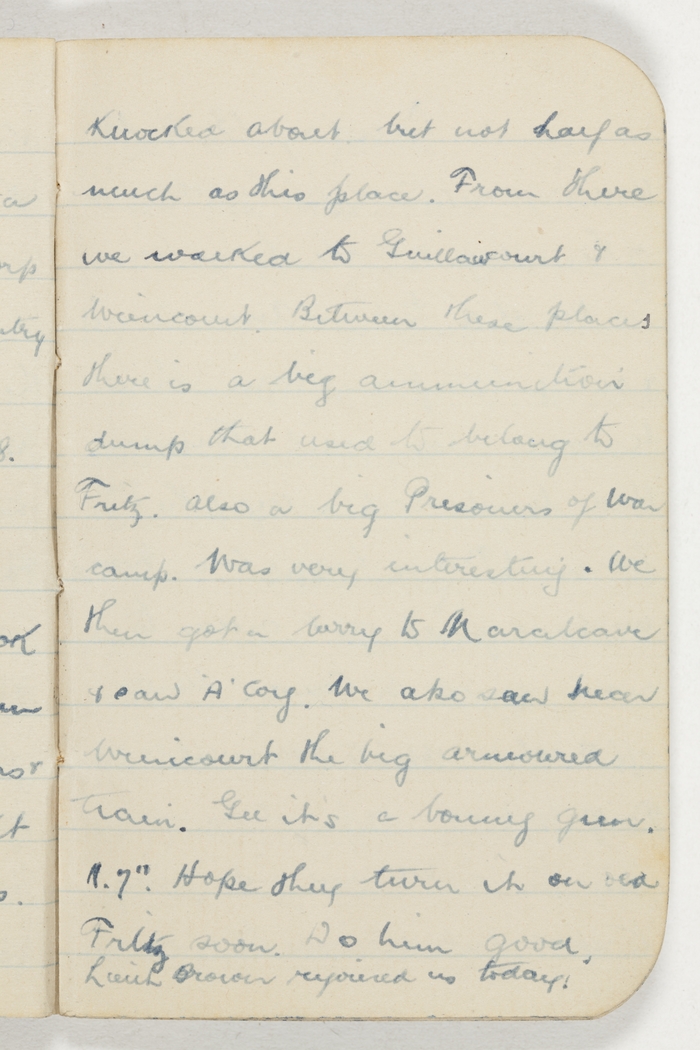 knocked about but not half as
much as this place. From there
we walked to Guillaucourt &
Wiencourt. Between these places
there is a big ammunition
dump that used to belong to
Fritz. Also a big Prisoners of War
camp. Was very interesting. We
then got a lorry to Marcelcave
& saw 'A' Coy. We also saw near
Wiencourt the big armoured
train. Gee it's a bonny gun.
11.7". Hope they turn it on old
Fritz soon. Do him good.
Lieut Brown rejoined us today.